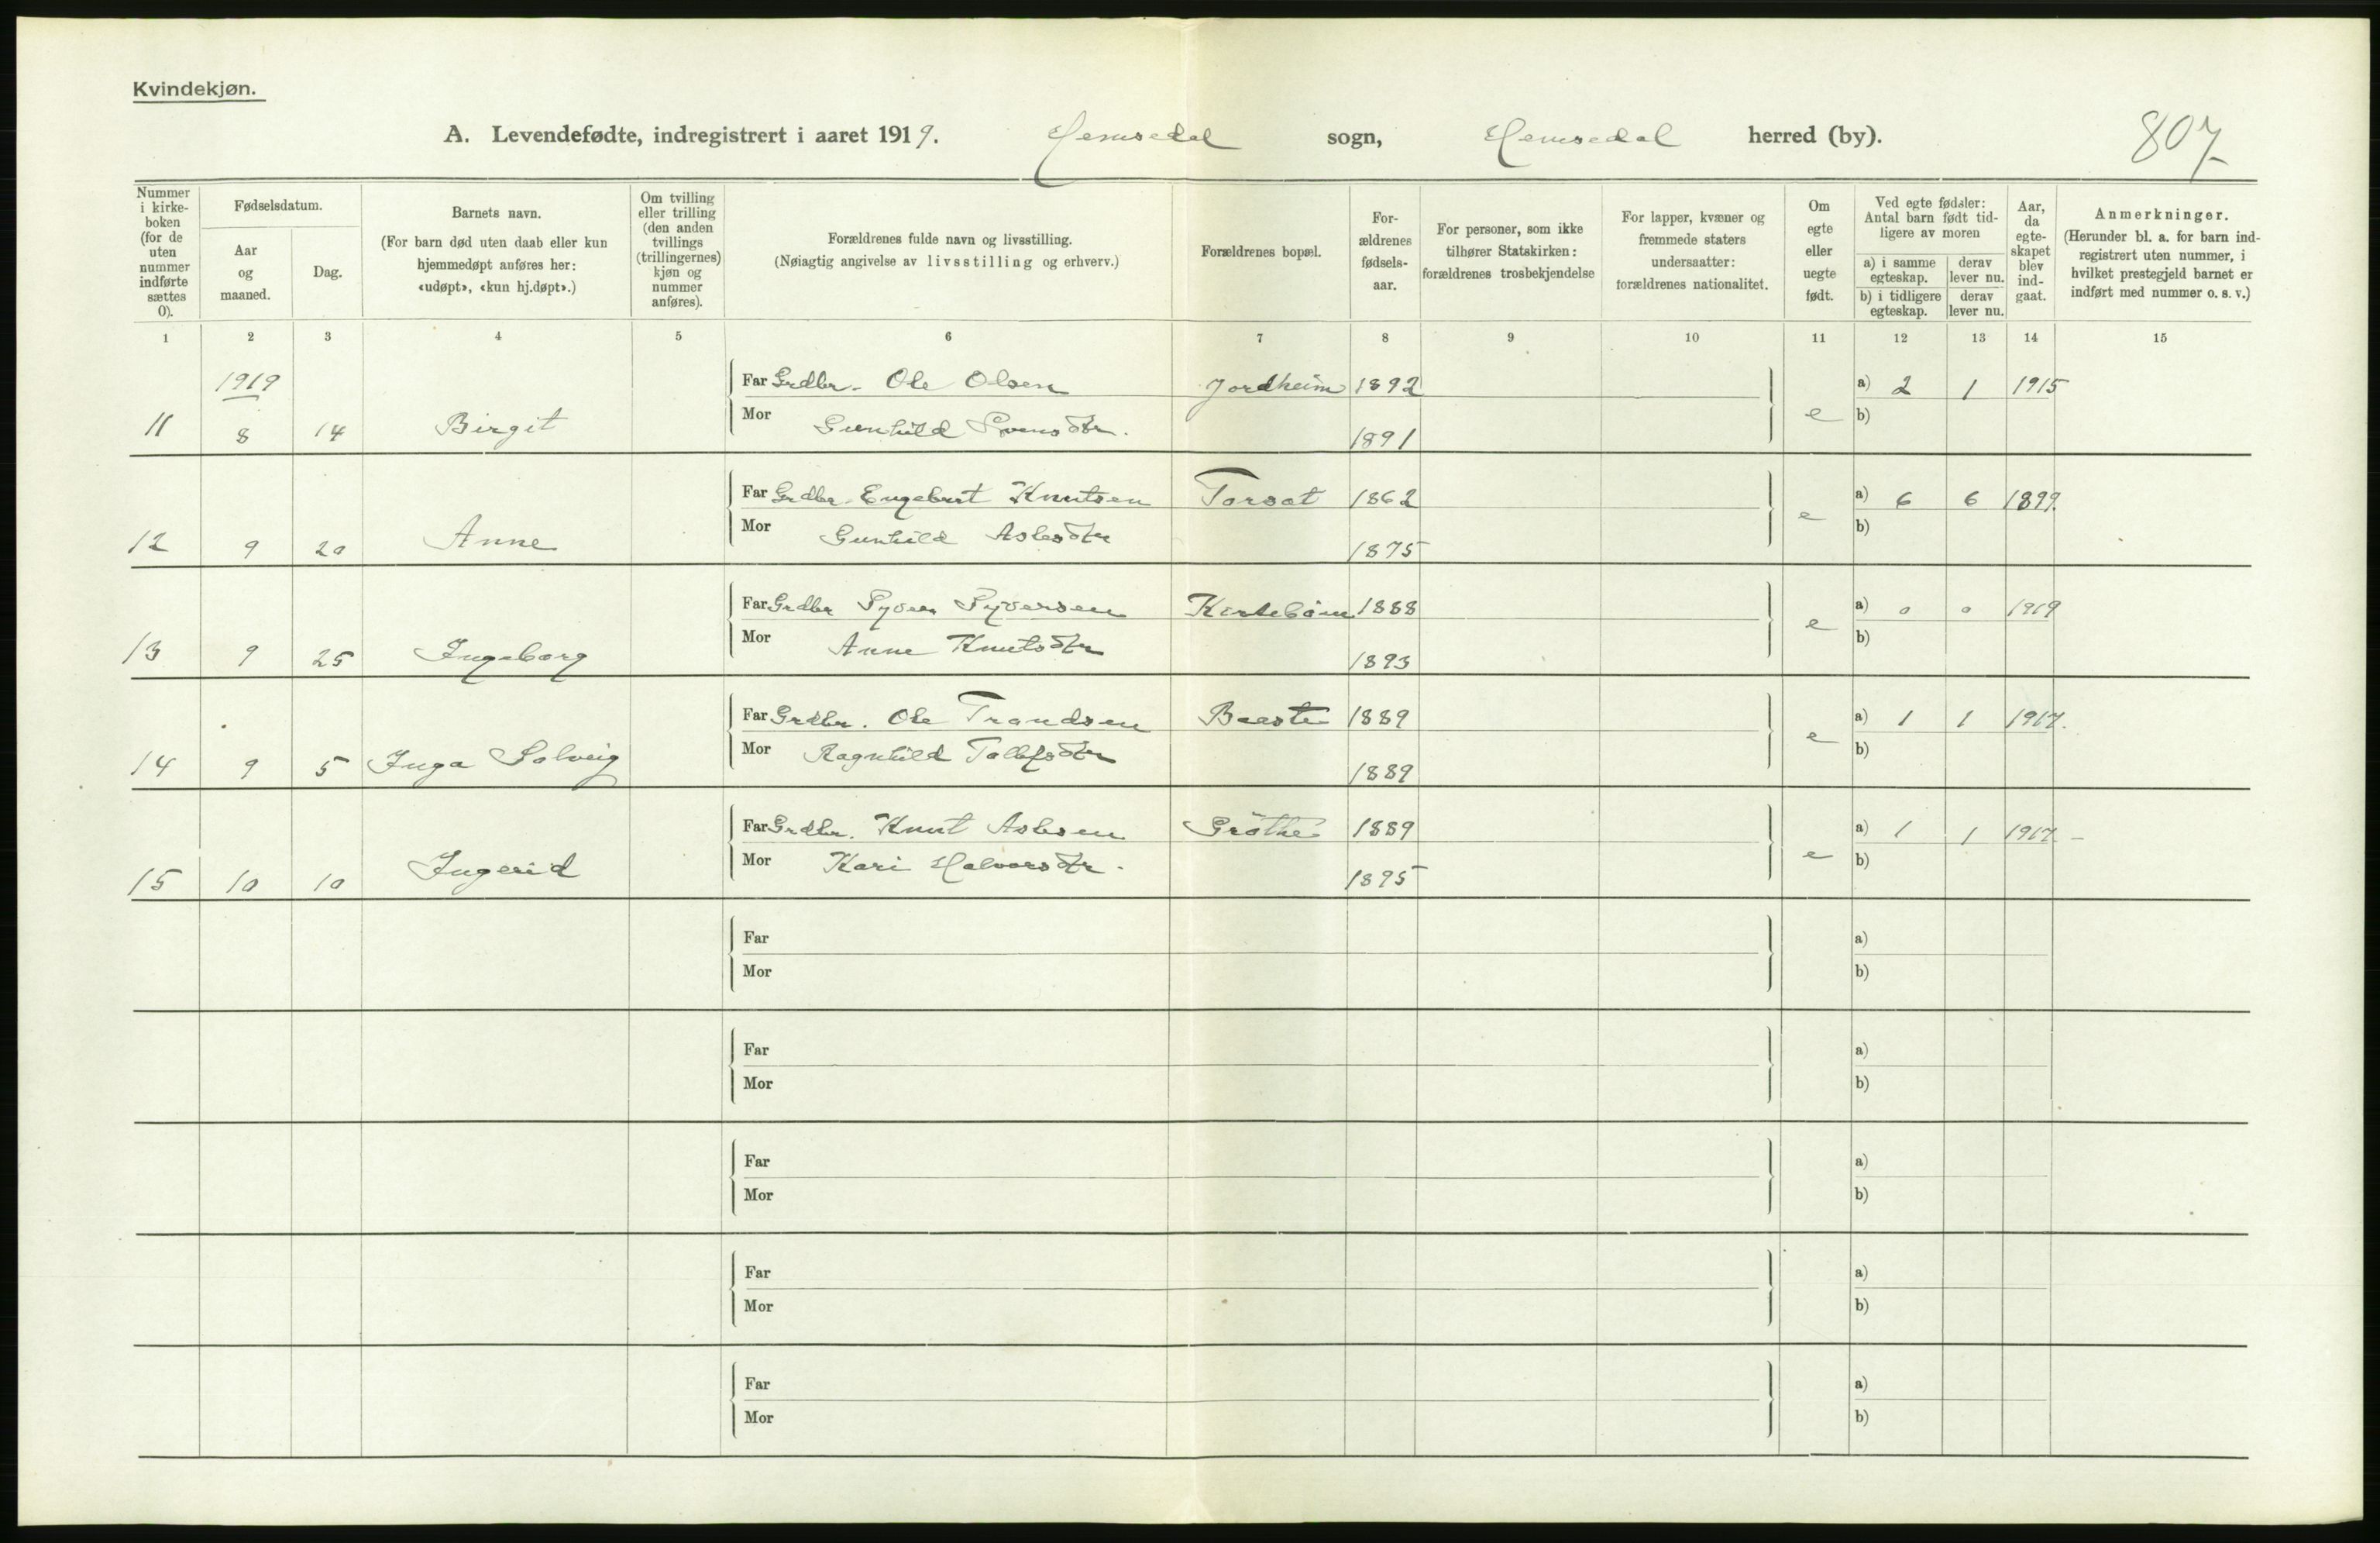 Kvindekjøn.
A. Levendefødte, indregistrert i aaret 1919. Hemsedal sogn, Hemsedal herred (by). 807
Nummer i kirkeboken (for de uten nummer indførte sættes 0).
Fødselsdatum.
Aar og maaned.
Dag.
Barnets navn.
(For barn død uten daab eller kun hjemmedøpt anføres her: «udøpt», «kun hj.døpt».)
Om tvilling eller trilling (den anden tvillings (trillingernes) kjøn og nummer anføres).
Forældrenes fulde navn og livsstilling.
(Nøiagtig angivelse av livsstilling og erhverv.)
Forældrenes bopæl.
Forældrenes fødselsaar.
For personer, som ikke tilhører Statskirken: forældrenes trosbekjendelse
For lapper, kvæner og fremmede staters undersaatter: forældrenes nationalitet.
Om egte eller uegte født.
Ved egte fødsler: Antal barn født tidligere av moren
a) i samme egteskap. derav lever nu.
b) i tidligere egteskap. derav lever nu.
Aar, da egteskapet blev indgaat.
Anmerkninger.
(Herunder bl. a. for barn indregistrert uten nummer, i hvilket prestegjeld barnet er indført med nummer o. s. v.)
1 2 3 4 5 6 7 8 9 10 11 12 13 14 15
1919 Far Grdbr. Ole Olsen Jordheim 1892 a) 2 1 1915
11 8 14 Birgit Mor Gunhild Svensdtr. 1891 e b)
Far Grdbr. Engebret Knutsen Torset 1862 a) 6 6 1899.
12 9 20 Anne Mor Gunhild Aslesdtr 1875 e b)
Far Grdbr Syver Syversen 1888 a) 0 0 1919
13 9 25 Ingeborg Mor Anne Knutsdtr 1893 e b)
Far Grdbr. Ole Trondsen 1889 a) 1 1 1917.
14 9 5 Inga Solveig Mor Ragnhild Tollefsdtr 1889 e b)
Far Grdbr. Knut Aslesen Grøthe 1889 a) 1 1 1917 –
15 10 10 Ingerid Mor Kari Halvorsdtr. 1895 e b)
Far a)
Mor b)
Far a)
Mor b)
Far a)
Mor b)
Far a)
Mor b)
Far a)
Mor b)